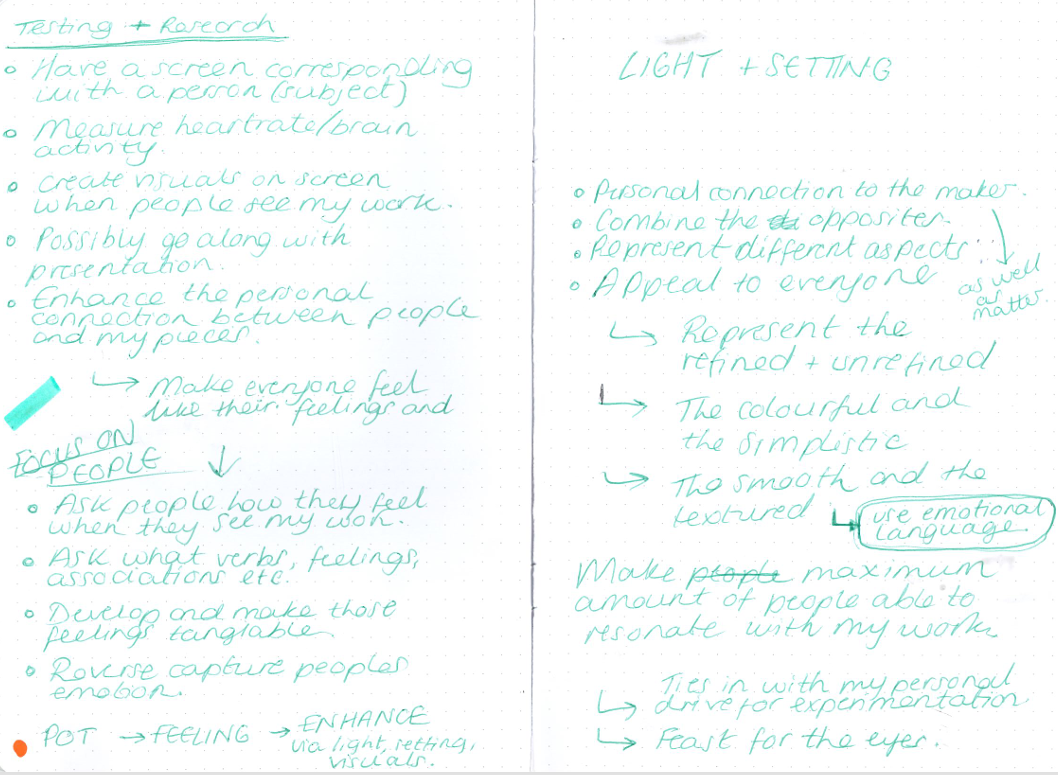 Testing + Research
Have a screen corresponding
with a person (subject)
Measure heartrate/brain
activity.
create visuals on screen
when people see my work.
Possibly go along with
presentation.
Enhance the personal
connection between people
and my pieces.
Make everyone feel
like their feelings and
FOCUS ON
PEOPLE
Ask people how they feel
when they see my work.
Ask what verbs, feelings,
associations etc.
Develop and make those
feelings tanglable.
Reverse capture peoples
emotion.
POT → FEELING → ENHANCE
via light, setting,
visuals.
LIGHT + SETTING
Personal connection to the maker.
Combine the opposites.
Represent different aspects
Appeal to everyone
as well
as
matter.
Represent the
refined + unrefined
The colourful and
the simplistic
The smooth and the
textured
use emotional
language.
Make people maximum
amount of people able to
resonate with my work.
Ties in with my personal
drive for experimentation
Feast for the eyes.